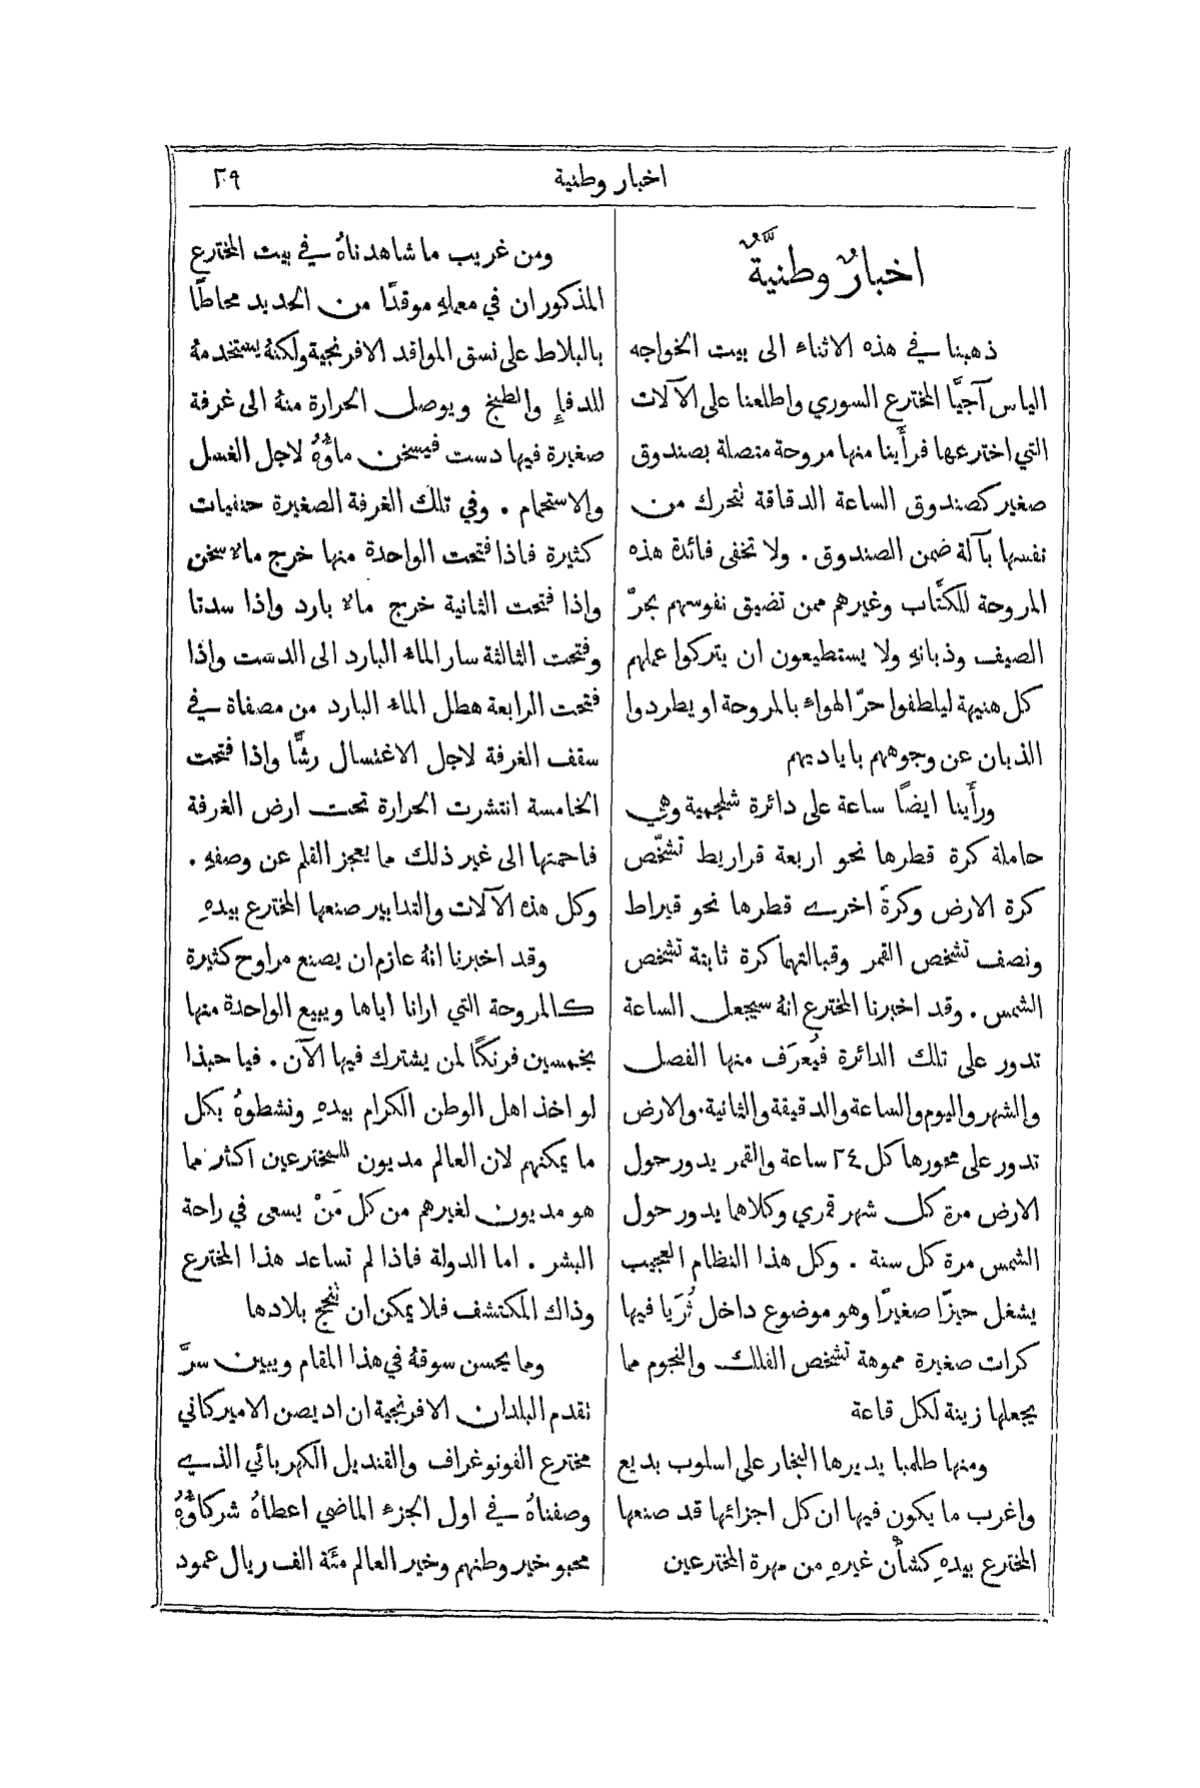 اخبار وطنية
٢٠٩
اخبارٌ وطنيَّةٌ
ذهبنا في هذه الاثناء الى بيت الخواجه
الياس آجيَّا المخترع السوري واطلعنا على الآلات
التي اخترعها فرأَينا منها مروحة متصلة بصندوق
صغير كصندوق الساعة الدقاقة تتحرك من
نفسها بآلة ضمن الصندوق . ولا تخفى فائدة هذه
المروحة للكتَّاب وغيرهم ممن تضيق نفوسهم بحرّ
الصيف وذبانهِ ولا يستطيعون ان يتركوا عملهم
كل هنيهة ليلطفوا حرّ الهواء بالمروحة او يطردوا
الذبان عن وجوههم باياديهم
ورأَينا ايضًا ساعة على دائرة شلجمية وهي
حاملة كرة قطرها نحو اربعة قراريط تشخّص
كرة الارض وكرة اخرى قطرها نحو قيراط
ونصف تشخص القمر وقبالتهما كرة ثابتة تشخص
الشمس . وقد اخبرنا المخترع انهُ سيجعل الساعة
تدور على تلك الدائرة فيُعرَف منها الفصل
والشهر واليوم والساعة والدقيقة والثانية . والارض
تدور على محورها كل ٢٤ ساعة والقمر يدور حول
الارض مرة كل شهر قمري وكلاهما يدور حول
الشمس مرة كل سنة . وكل هذا النظام العجيب
يشغل حيزًا صغيرًا وهو موضوع داخل ثُرَيا فيها
كرات صغيرة مموهة تشخص الفلك والنجوم مما
يجعلها زينة لكل قاعة
ومنها طلمبا يديرها البخار على اسلوب بديع
واغرب ما يكون فيها ان كل اجزائها قد صنعها
المخترع بيدهِ كشأْن غيرهِ من مهرة المخترعين
ومن غريب ما شاهدناهُ في بيت المخترع
المذكور ان في معملهِ موقدًا من الحديد محاطًا
بالبلاط على نسق المواقد الافرنجية ولكنهُ يستخدمهُ
للدفإِ والطبخ ويوصل الحرارة منهُ الى غرفة
صغيرة فيها دست فيسخن ماؤُهُ لاجل الغسل
والاستحمام . وفي تلك الغرفة الصغيرة حنفيات
كثيرة فاذا فتحت الواحدة منها خرج مالا سخن
واذا فتحت الثانية خرج مالا بارد واذا سدتا
وفتحت الثالثة سار الماء البارد الى الدست واذا
فتحت الرابعة هطل الماء البارد من مصفاة في
سقف الغرفة لاجل الاغتسال رشًّا واذا فتحت
الخامسة انتشرت الحرارة تحت ارض الغرفة
فاحمتها الى غير ذلك مما يعجز القلم عن وصفهِ .
وكل هذه الآلات والتدابير صنعها المخترع بيدهِ
وقد اخبرنا انهُ عازم ان يصنع مراوح كثيرة
كالمروحة التي ارانا اياها ويبيع الواحدة منها
بخمسين فرنكًا لمن يشترك فيها الآن . فيا حبذا
لو اخذ اهل الوطن الكرام بيدهِ ونشطوهُ بكل
ما يمكنهم لان العالم مديون للمخترعين اكثر مما
هو مديون لغيرهم من كل مَنْ يسعى في راحة
البشر . اما الدولة فاذا لم تساعد هذا المخترع
وذاك المكتشف فلا يمكن ان تنجح بلادها
ومما يحسن سوقهُ في هذا المقام ويبين سرَّ
تقدم البلدان الافرنجية ان اديصن الاميركاني
مخترع الفونوغراف والقنديل الكهربائي الذي
وصفناهُ في اول الجزء الماضي اعطاهُ شركاؤُهُ
محبو خير وطنهم وخير العالم مئَة الف ريال عمود